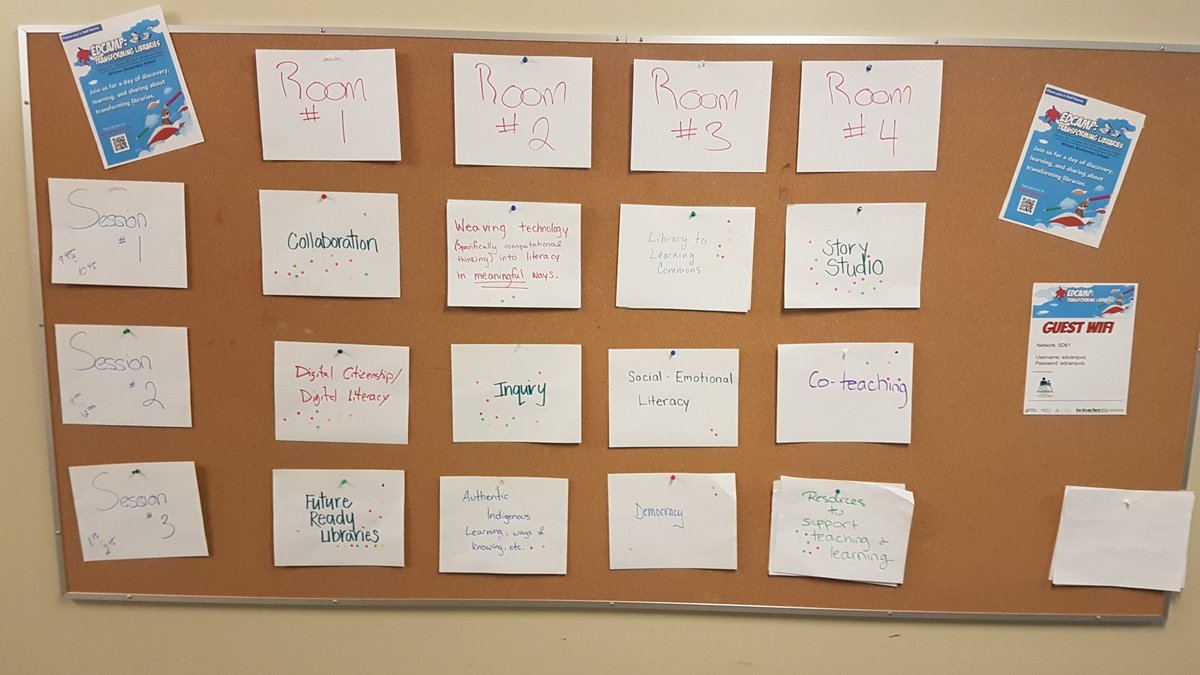 EDCAMP:
TRANSFORMING LIBRARIES
Join us for a day of discovery,
learning, and sharing about
transforming libraries.
Room
# 1
Room
# 2
Room
#3
Room
#4
EDCAMP:
TRANSFORMING LIBRARIES
Join us for a day of discovery,
learning, and sharing about
transforming libraries.
Session
# 1
9:45
10:45
Collaboration
Weaving technology
(specifically computational
thinking) into literacy
in meaningful ways.
Library to
Learning
Commons
Story
Studio
EDCAMP:
TRANSFORMING LIBRARIES
GUEST WIFI
Network: SD61
Username: edcampvic
Password: edcampvic
Session
# 2
11:00
12:00
Digital Citizenship/
Digital Literacy
Inquiry
Social-Emotional
Literacy
Co-teaching
Session
# 3
Future
Ready
Libraries
Authentic
Indigenous
Learning, ways of
knowing, etc.
Democracy
Resources
to
support
teaching +
learning